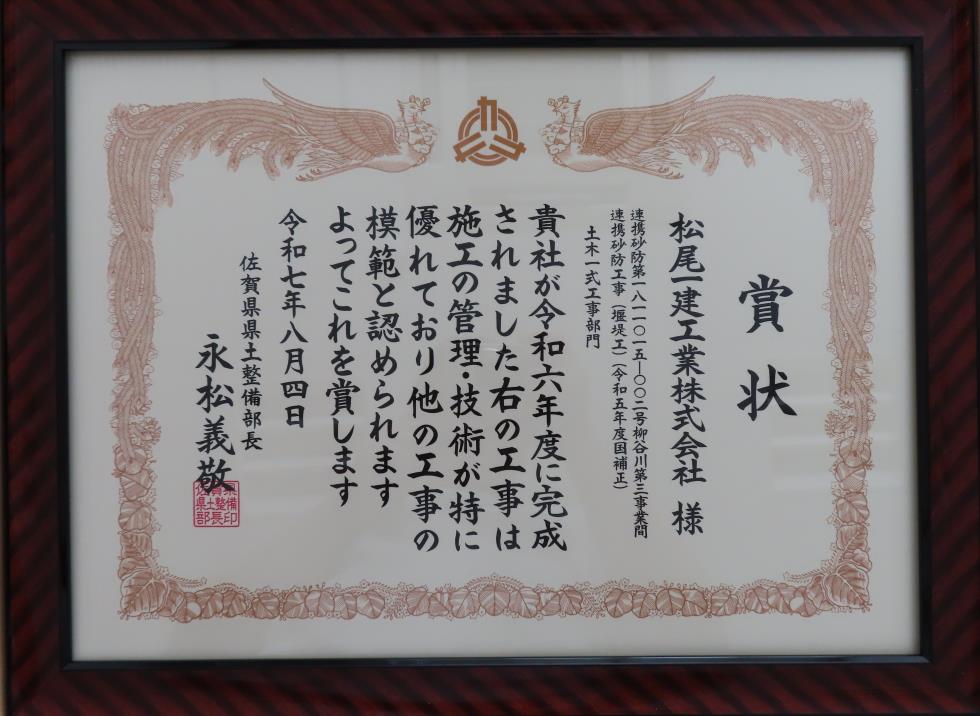 賞状
松尾一建工業株式会社 様
連携砂防第一八一一〇一五―〇〇二号柳谷川第三事業間
連携砂防工事（堰堤工）（令和五年度国補正）
土木一式工事部門
貴社が令和六年度に完成
されました右の工事は
施工の管理・技術が特に
優れており他の工事の
模範と認められます
よってこれを賞します
令和七年八月四日
佐賀県県土整備部長
永松義敬